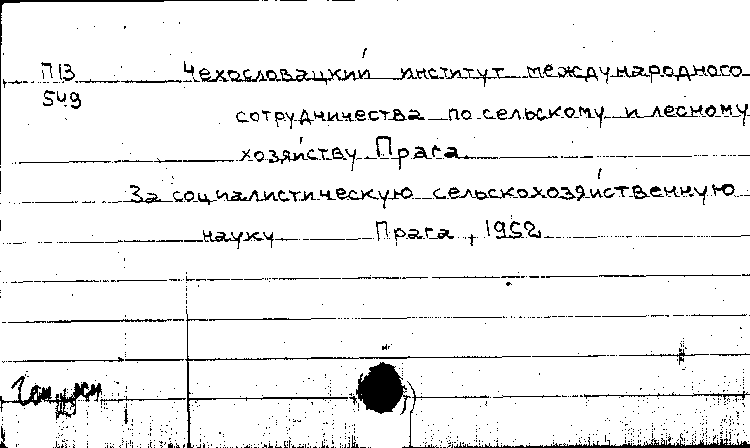 П13 Чехословацкий институт международного
549 сотрудничества по сельскому и лесному
хозяйству Прага.
За социалистическую сельскохозяйственную
науку Прага, 1952